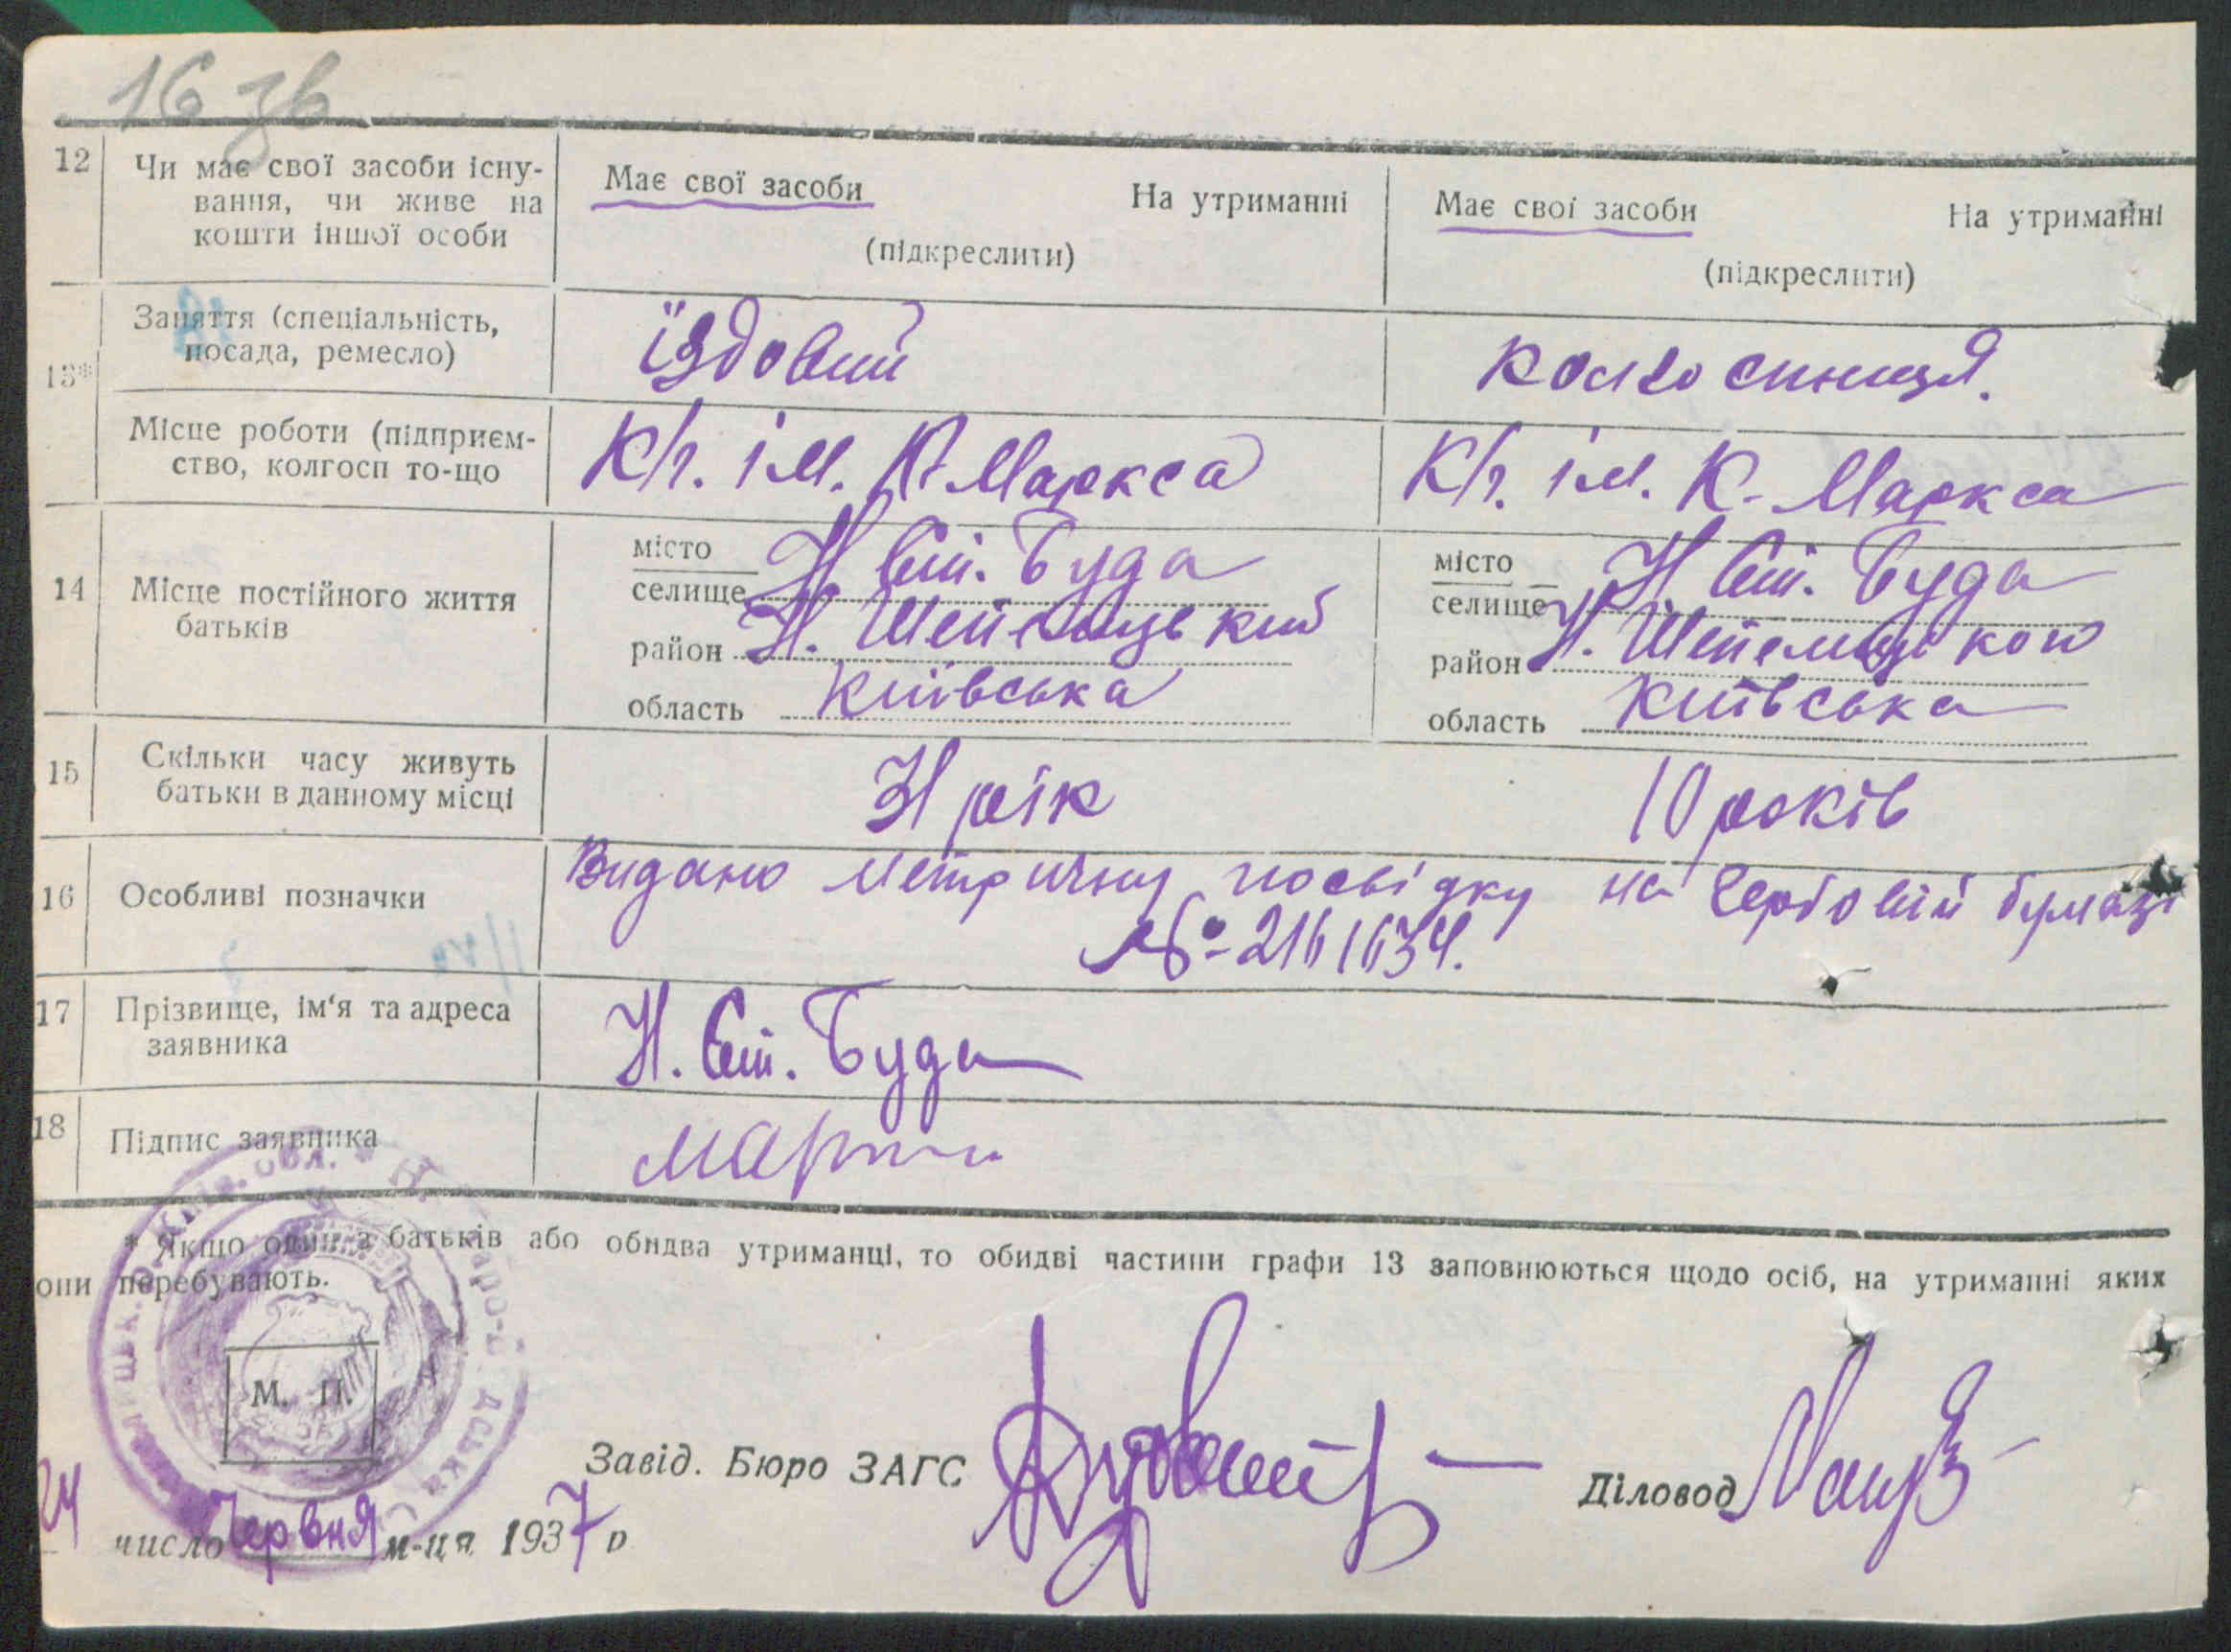 16 зв
12 Чи має свої засоби існу-
вання, чи живе на
кошти іншої особи
Має свої засоби На утриманні
(підкреслити)
Має свої засоби На утриманні
(підкреслити)
13* Заняття (спеціальність,
посада, ремесло)
їздовий
колгоспниця.
Місце роботи (підприєм-
ство, колгосп то-що
К/г. ім. К Маркса
К/г. ім. К. Маркса
14 Місце постійного життя
батьків
місто
селище Н Єпі. Буда
район Н. Шепелицький
область Київська
місto
селище Н Єпі. Буда
район Н. Шепелицького
область Київська
15 Скільки часу живуть
батьки в данному місці
рік
10 років
16 Особливі позначки
Видано метричну посвідку на гербовій бумазі
№-2161634.
17 Прізвище, ім‘я та адреса
заявника
Н. Єпі. Буда
18 Підпис заявника
* Якщо один з батьків або обидва утриманці, то обидві частини графи 13 заповнюються щодо осіб, на утриманні яких
они перебувають.
М. П.
Завід. Бюро ЗАГС
Діловод
24 число Червня м-ця 1937 р